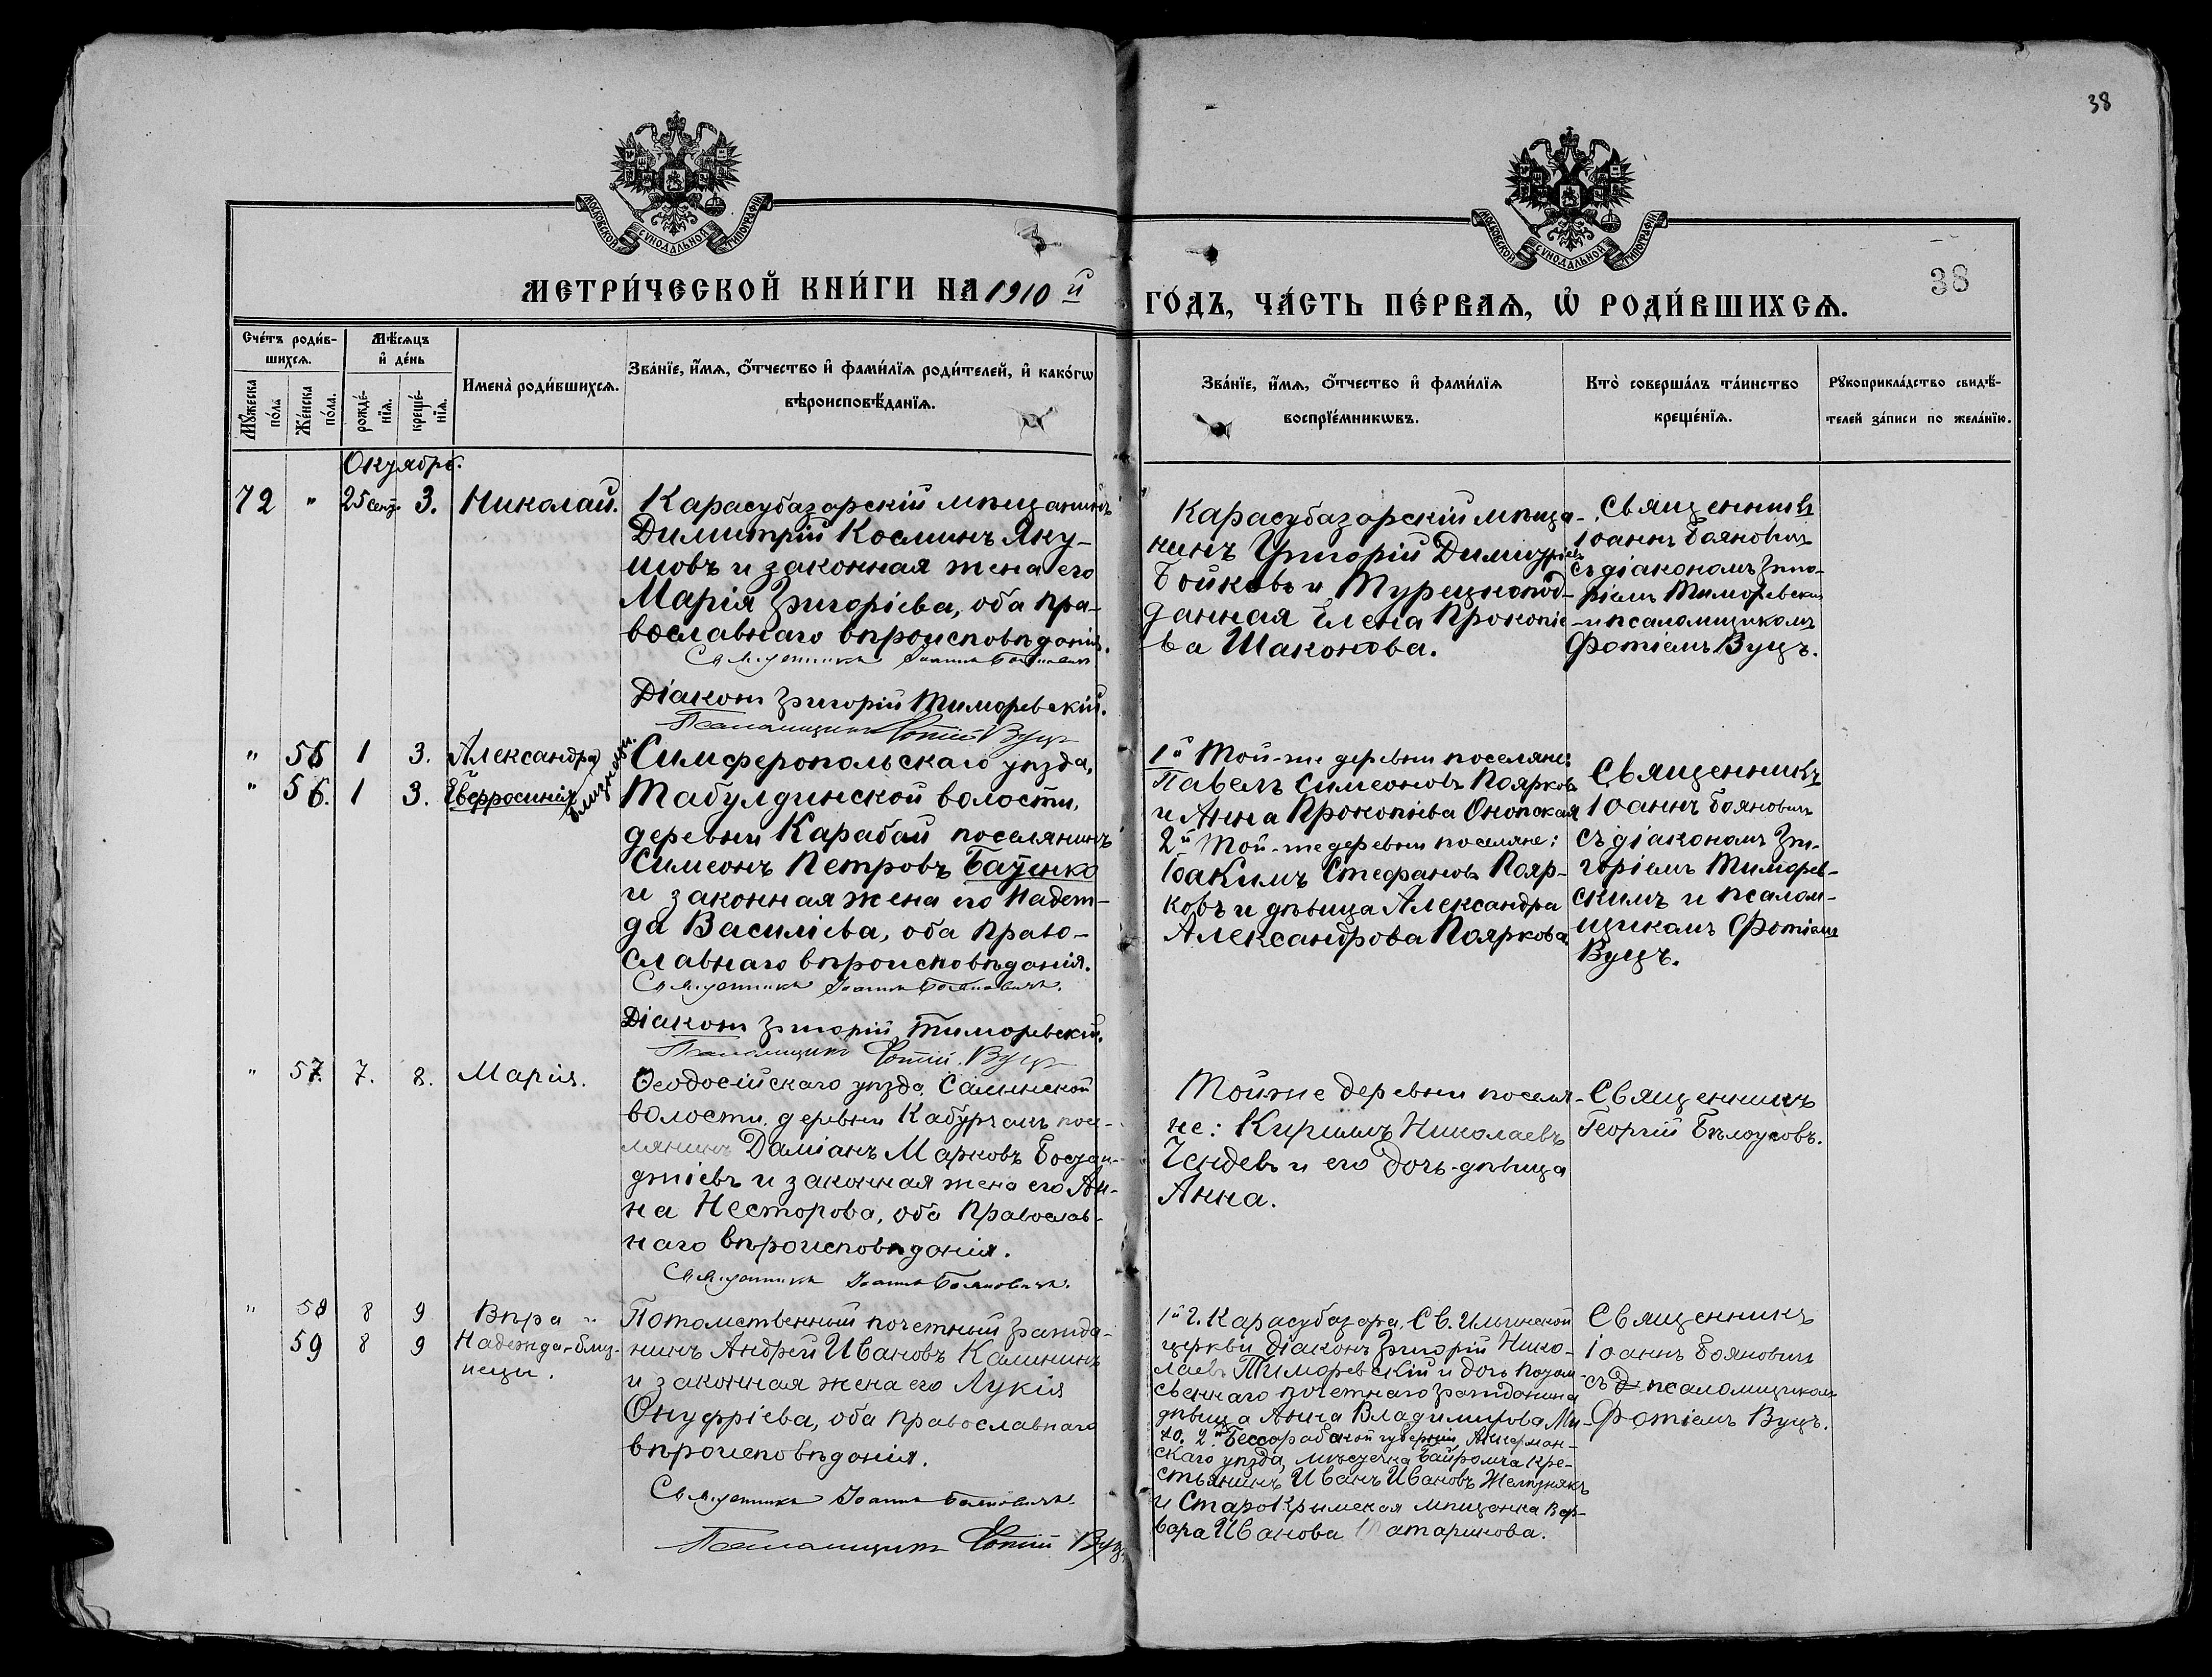 38
МОСКОВСКОЙ СѴНОДАЛЬНОЙ ТИПОГРАФІИ
МОСКОВСКОЙ СѴНОДАЛЬНОЙ ТИПОГРАФІИ
38
МЕТРИ́ЧЕСКОЙ КНИ́ГИ НА 1910 й
ГО́ДЪ, ЧА́СТЬ ПЕ́РВАѦ, Ѽ РОДИ́ВШИХСѦ.
Сче́тъ роди́в-
шихсѧ.
Мꙋжеска по́ла
Же́нска по́ла.
Мѣ́сѧцъ
и҆ де́нь
рожде́-
нїѧ.
креще́-
нїѧ.
Имена̀ роди́вшихсѧ.
Зва́нїе, и҆́мѧ, ѻ҆́тчество и҆ фами́лїѧ роди́телей, и҆ како́гѡ
вѣроисповѣ́данїѧ.
Зва́нїе, и҆́мѧ, ѻ҆́тчество и҆ фами́лїѧ
воспрїе́мникѡвъ.
Кто̀ соверша́лъ та́инство
креще́нїѧ.
Рꙋкоприкла́дство свидѣ́-
телей за́писи по жела́нїю.
Октябрь.
72 " 25 сент. 3. Николай.
Карасубазарскій мѣщанинъ
Димитрій Косминъ Яку-
шовъ и законная жена его
Марія Григоріева, оба пра-
вославнаго вѣроисповѣданія.
Священникъ Іоаннъ Бояновичъ
Діаконъ Григорій Тиморевскій.
Псаломщикъ Фотій Вуцъ
Карасубазарскій мѣща-
нинъ Григорій Димитріевъ
Бойковъ и Турецкопод-
данная Елена Прокопіе-
ва Шаконова.
Священникъ
Іоаннъ Бояновичъ
съ діакономъ Григо-
ріемъ Тиморевскимъ
и псаломщикомъ
Фотіемъ Вуцъ.
" 55 1 3. Александра
" 56. 1 3. Евфросинія близнецы.
Симферопольскаго уѣзда,
Табулдинской волости,
деревни Карабай поселянинъ
Симеонъ Петровъ Баценко
и законная жена его Надеж-
да Василіева, оба право-
славнаго вѣроисповѣданія.
Священникъ Іоаннъ Бояновичъ.
Діаконъ Григорій Тиморевскій.
Псаломщикъ Фотій Вуцъ
1й Той-же деревни поселяне:
Павелъ Симеоновъ Поярковъ
и Анна Прокопіева Онопская
2й Той-же деревни поселяне:
Іоакимъ Стефановъ Пояр-
ковъ и дѣвица Александра
Александрова Пояркова
Священникъ
Іоаннъ Бояновичъ
съ діакономъ Гри-
горіемъ Тиморев-
скимъ и псалом-
щикомъ Фотіемъ
Вуцъ.
" 57. 7. 8. Марія.
Ѳеодосійскаго уѣзда, Салынской
волости, деревни Кабурчакъ посе-
лянинъ Даміанъ Марковъ
и законная жена его Ан-
на Несторова, оба православ-
наго вѣроисповѣданія.
Священникъ Іоаннъ Бояновичъ.
Той-же деревни поселя-
не: Кириллъ Николаевъ
Чендевъ и его дочь-дѣвица
Анна.
Священникъ
Георгій Бѣлоусовъ.
" 58 8 9 Вѣра "
59 8 9 Надежда-близ-
нецы.
Потомственный почетный гражда-
нинъ Андрей Ивановъ Калининъ
и законная жена его Лукія
Онуфріева, оба православнаго
вѣроисповѣданія.
Священникъ Іоаннъ Бояновичъ.
Псаломщикъ Фотій Вуцъ.
1й г. Карасубазара, Св. Ильинской
церкви діаконъ Григорій Нико-
лаевъ Тиморевскій и дочь потом-
свеннаго почетнаго гражданина
дѣвица Анна Владимирова
2й Бессарабской губерніи, Аккерман-
скаго уѣзда, мѣстечка Байрамча кре-
стьянинъ Иванъ Ивановъ Желѣзнякъ
и Старокрымская мѣщанка Вар-
вара Иванова Татаринова.
Священникъ
Іоаннъ Бояновичъ
съ псаломщикомъ
Фотіемъ Вуцъ.